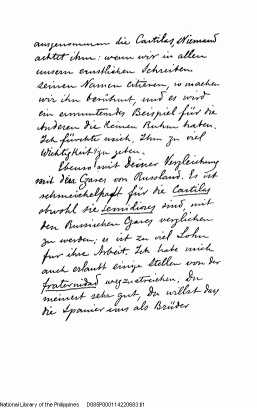 ausgenommen die Cartilas, Niemand
achtet ihn; wenn wir in allen
unsern ernstlichen Schreiben
seinen Namen citieren, so machen
wir ihn berühmt, und es wird
ein ermuntendes Beispiel für die
Anderen die keinen Ruhm haben.
Ich fürchte mich, Ihm zu viel
Wichtigkeit zu geben.
Ebenso mit deiner Vergleichung
mit dem Czares von Russland. Es ist
schmeichelhaft für die Cartilas
obwohl sie semidioses sind, mit
den Russischen Czares verglichen
zu werden; es ist zu viel Lohn
für ihre Arbeit. Ich habe mich
auch erlaubt einige Stellen von der
fraternidad wegzustreichen. Du
meinest sehr gut, du willst dass
die Spanier uns als Brüder
National Library of the Philippines